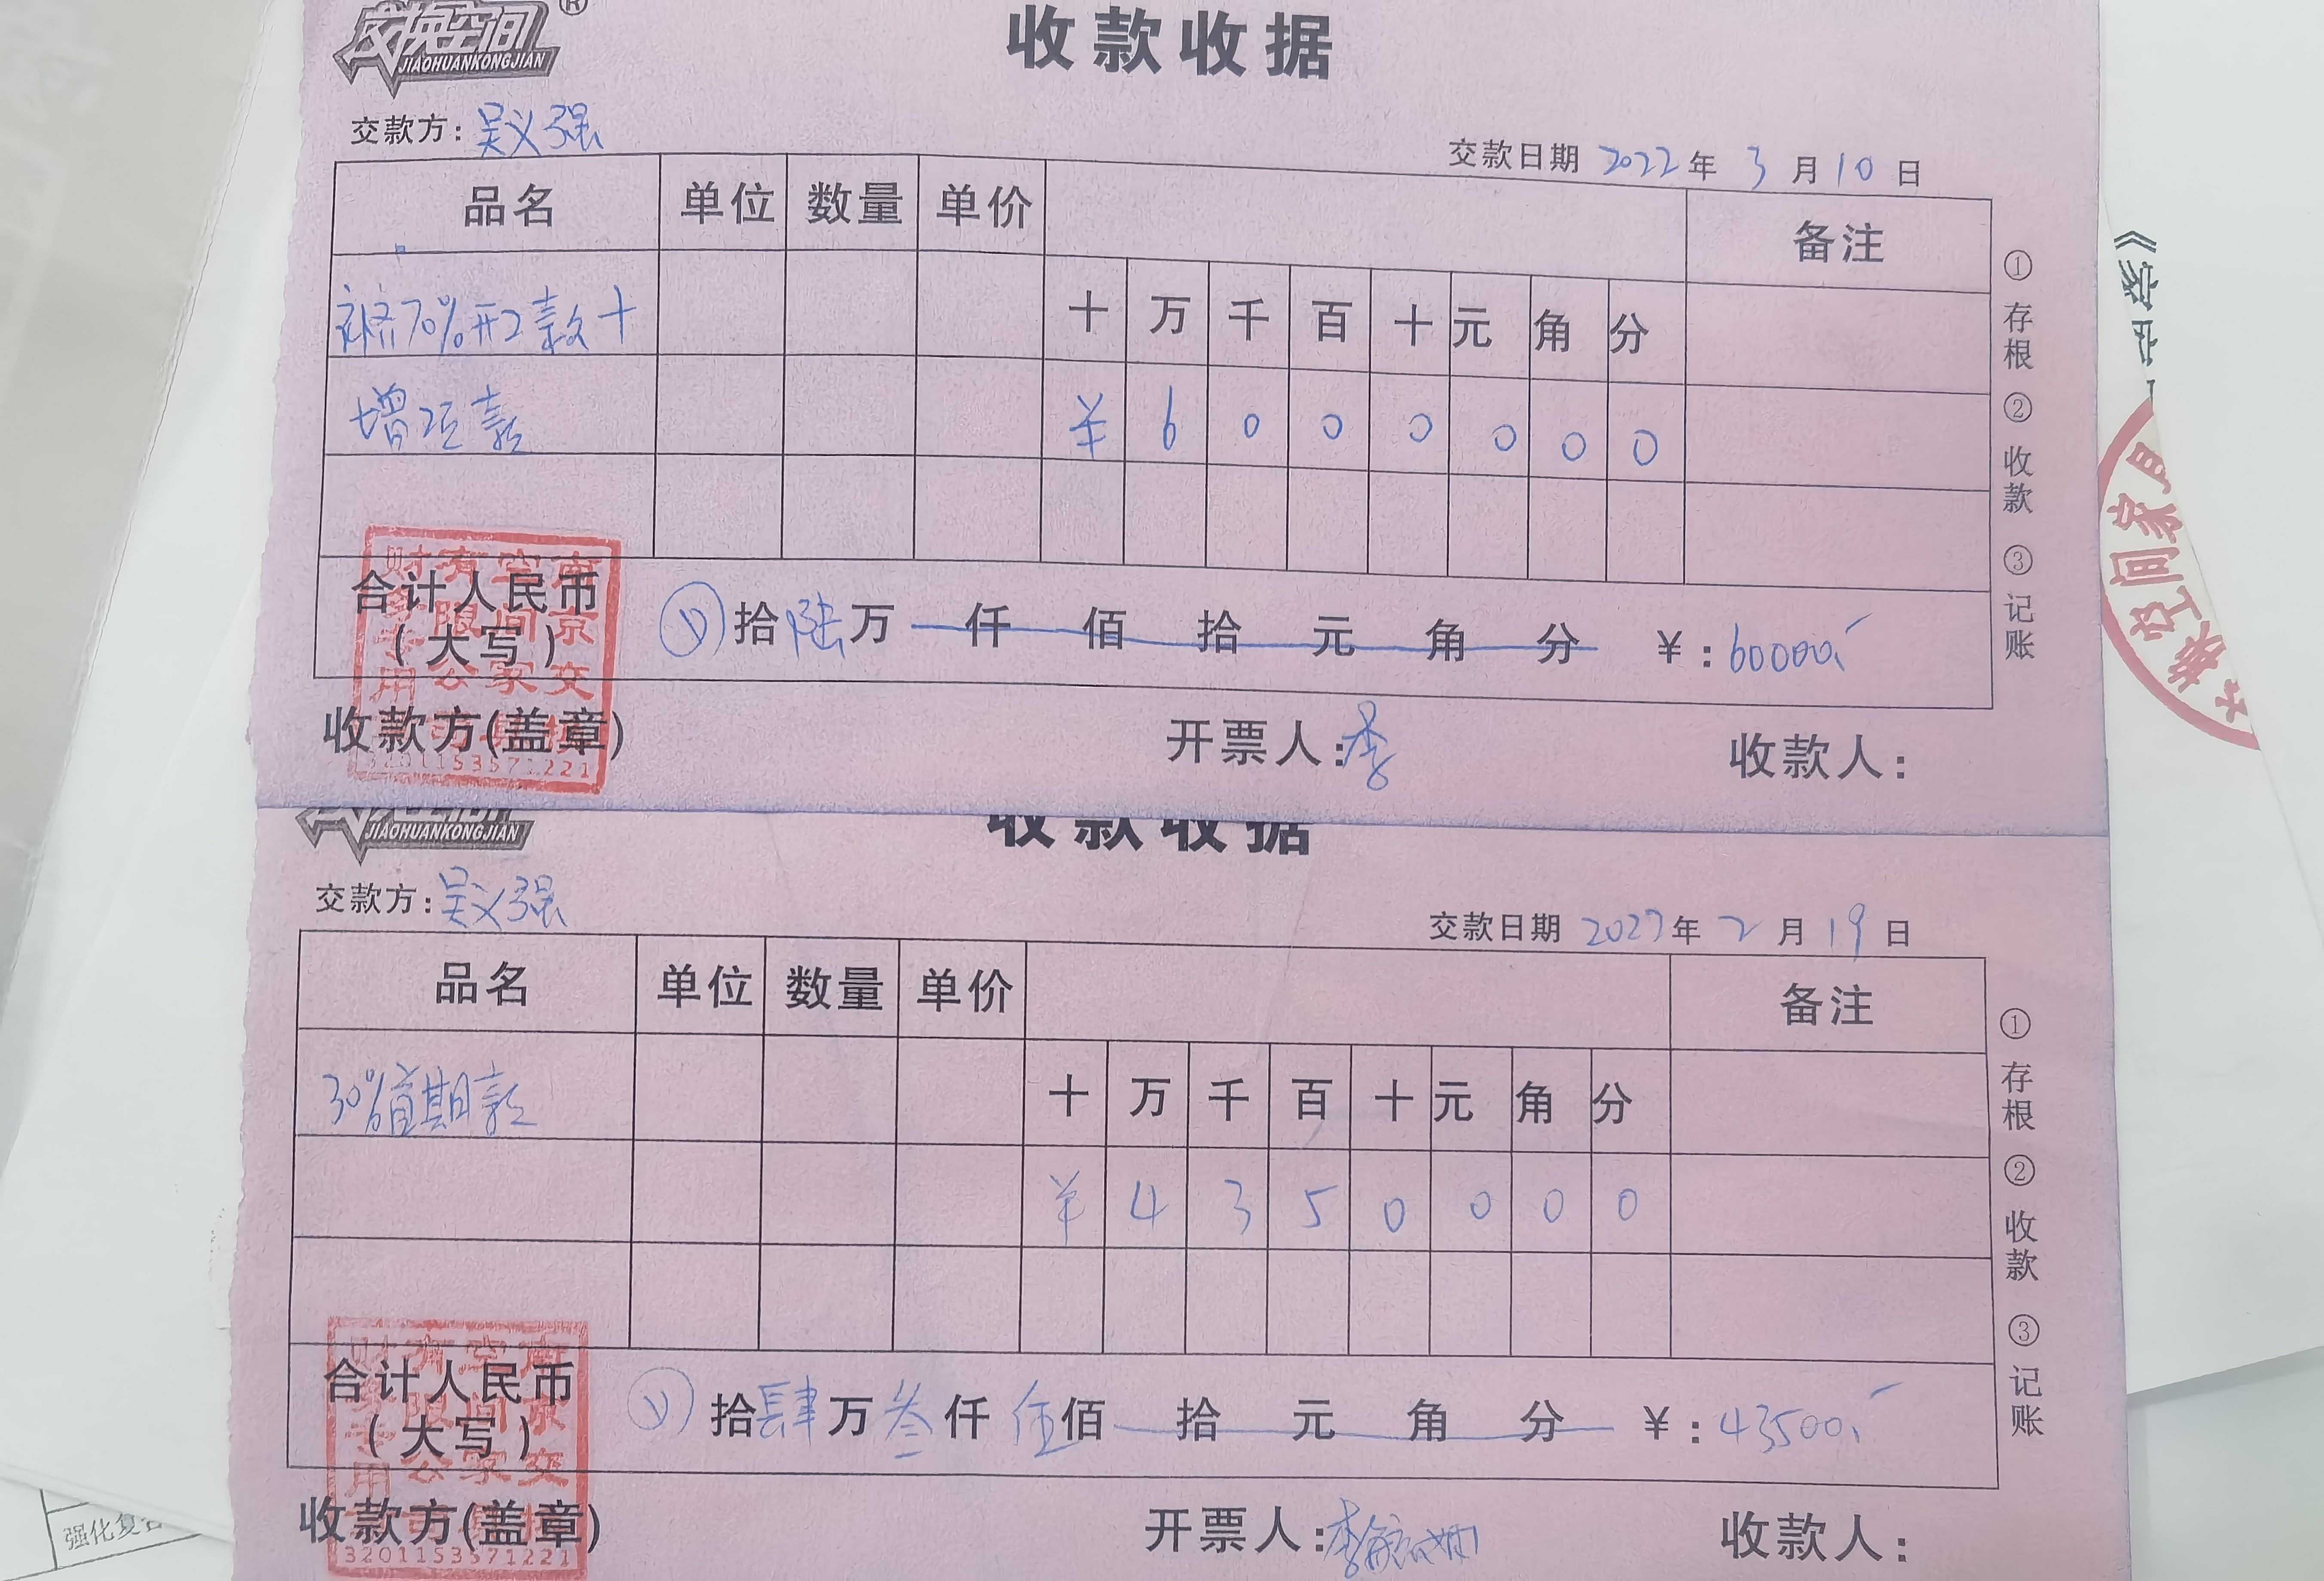 交换空间®
JIAOHUANKONGJIAN
收款收据
交款方：吴义强
交款日期 2022年 3月10日
品名 单位 数量 单价 备注
补齐70%开工款+ 十 万 千 百 十 元 角 分
增项款 ¥ 6 0 0 0 0 0 0
合计人民币
(大写) 拾陆万 仟 佰 拾 元 角 分 ¥：60000
收款方(盖章) 开票人：李 收款人：
南京交换空间家具有限公司财务专用
3201153571221
①存根 ②收款 ③记账
JIAOHUANKONGJIAN
收款收据
交款方：吴义强
交款日期 2022年 2月19日
品名 单位 数量 单价 备注
30%首期款 十 万 千 百 十 元 角 分
¥ 4 3 5 0 0 0 0
合计人民币
(大写) 拾肆万叁仟伍佰 拾 元 角 分 ¥：43500
收款方(盖章) 开票人：李 收款人：
3201153571221
①存根 ②收款 ③记账
空间家具
强化复合